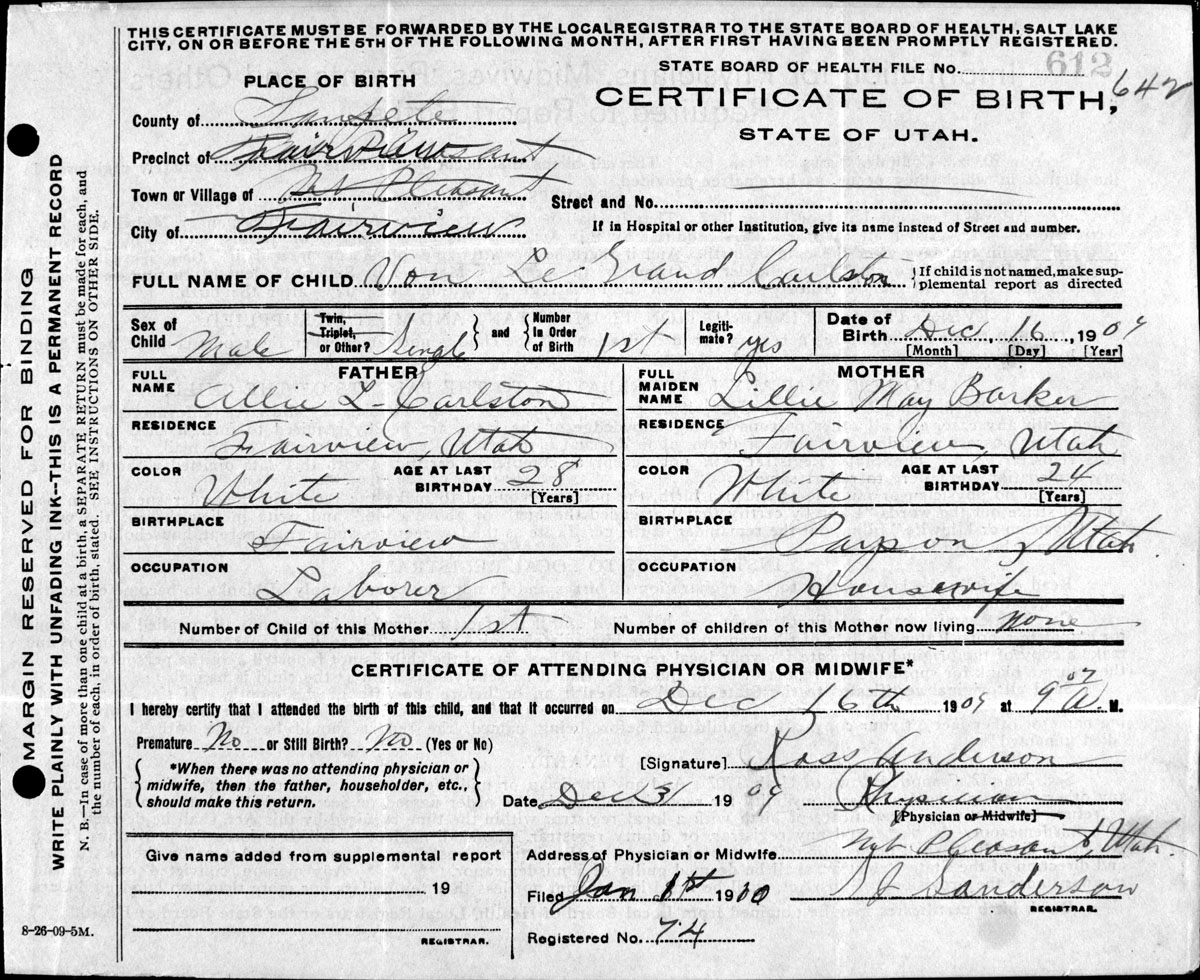 THIS CERTIFICATE MUST BE FORWARDED BY THE LOCAL REGISTRAR TO THE STATE BOARD OF HEALTH, SALT LAKE
CITY, ON OR BEFORE THE 5TH OF THE FOLLOWING MONTH, AFTER FIRST HAVING BEEN PROMPTLY REGISTERED.
STATE BOARD OF HEALTH FILE No. 612
642
PLACE OF BIRTH
CERTIFICATE OF BIRTH,
STATE OF UTAH.
County of Sanpete
Precinct of
Town or Village of Mt Pleasant
Street and No.
City of Fairview
If in Hospital or other Institution, give its name instead of Street and number.
FULL NAME OF CHILD Von Le Grand Carlston { If child is not named, make sup-
plemental report as directed
Sex of Child Male
Twin, Triplet, or Other? Single } and { Number In Order of Birth 1st
Legiti-mate? yes
Date of Birth Dec, 16, 1909
[Month] [Day] [Year]
FATHER
FULL NAME Allie L. Carlston
RESIDENCE Fairview, Utah
COLOR White AGE AT LAST BIRTHDAY 28 [Years]
BIRTHPLACE Fairview
OCCUPATION Laborer
MOTHER
FULL MAIDEN NAME Lillie May Barker
RESIDENCE Fairview, Utah
COLOR White AGE AT LAST BIRTHDAY 24 [Years]
BIRTHPLACE Payson, Utah.
OCCUPATION Housewife
Number of Child of this Mother 1st Number of children of this Mother now living none
CERTIFICATE OF ATTENDING PHYSICIAN OR MIDWIFE*
I hereby certify that I attended the birth of this child, and that it occurred on Dec 16th 1909 at 9 07 A. M.
Premature No or Still Birth? No (Yes or No)
{ *When there was no attending physician or
midwife, then the father, householder, etc.,
should make this return. }
[Signature] Ross Anderson
Date Dec 31 1909 Physician
[Physician or Midwife]
Give name added from supplemental report
19
REGISTRAR.
Address of Physician or Midwife Mt Pleasant, Utah.
Filed Jan 1st 1910 Sanderson
REGISTRAR.
Registered No. 74
8-26-09-5M.
MARGIN RESERVED FOR BINDING
WRITE PLAINLY WITH UNFADING INK--THIS IS A PERMANENT RECORD
N. B.--In case of more than one child at a birth, a SEPARATE RETURN must be made for each, and
the number of each, in order of birth, stated. SEE INSTRUCTIONS ON OTHER SIDE.